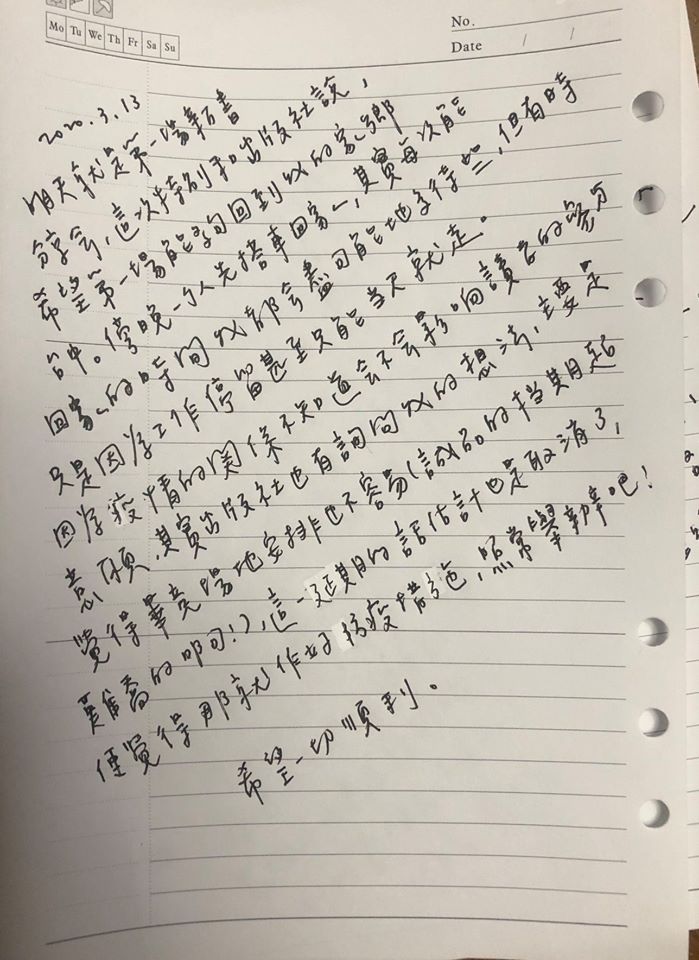 Mo Tu We Th Fr Sa Su
No.
Date / /
2020.3.13
明天就是第一場新書
分享會,這次特別和出版社說,
希望第一場能夠回到我的家鄉
台中。傍晚一個人先搭車回家~,其實每次能
回家~的時間我都會盡可能地多待些,但有時
只是因為工作停留甚至只能當天就走。
因為疫情的關係不知道會不會影响讀者的參加
意願,其實出版社也有詢問我的想法,主要是
覺得畢竟場地安排也不容易(誠品的檔期超
難喬的叩叩!),這一延期的話估計也是取消了,
便覺得那就作好防疫措施,照常舉辦吧!
希望一切順利。